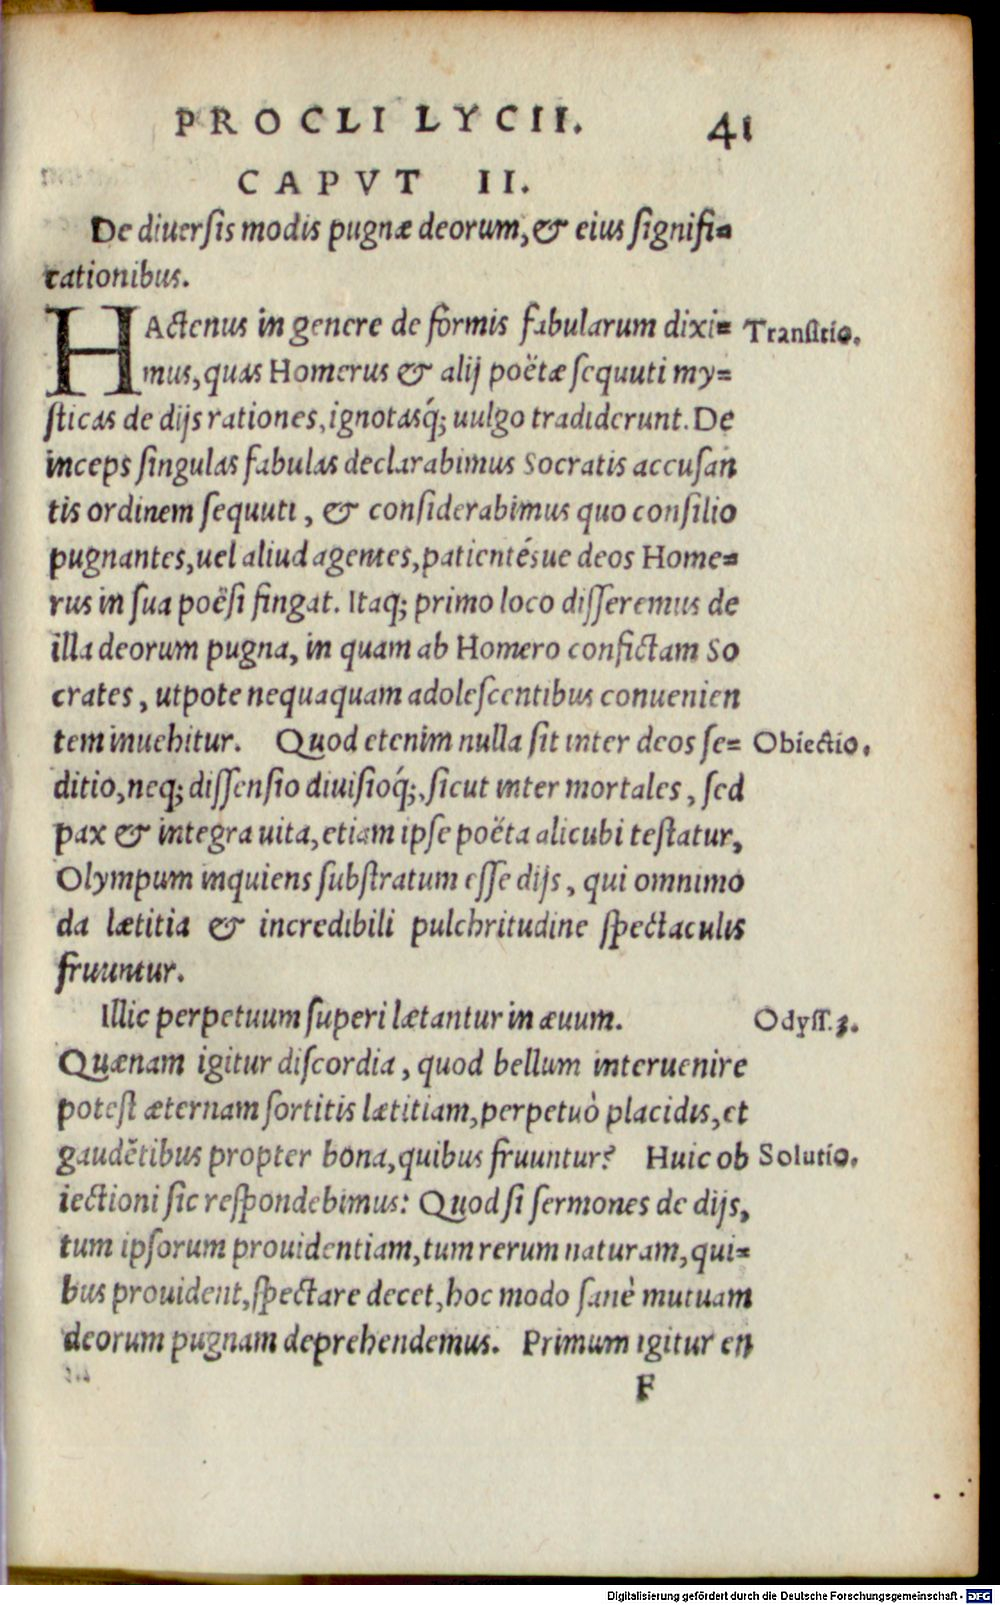 PROCLI LYCII. 41
CAPVT II.
De diuersis modis pugnæ deorum, & eius signifi=
cationibus.
HActenus in genere de formis fabularum dixi= Transitio.
mus, quas Homerus & alij poëtæ sequuti my=
sticas de dijs rationes, ignotasq́; uulgo tradiderunt. De
inceps singulas fabulas declarabimus Socratis accusan
tis ordinem sequuti, & considerabimus quo consilio
pugnantes, uel aliud agentes, patientésue deos Home=
rus in sua poësi fingat. Itaq; primo loco disseremus de
illa deorum pugna, in quam ab Homero confictam So
crates, utpote nequaquam adolescentibus conuenien
tem inuehitur. Quod etenim nulla sit inter deos se= Obiectio.
ditio, neq; dissensio diuisioq́;, sicut inter mortales, sed
pax & integra uita, etiam ipse poëta alicubi testatur,
Olympum inquiens substratum esse dijs, qui omnimo
da lætitia & incredibili pulchritudine spectaculis
fruuntur.
Illic perpetuum superi lætantur in æuum. Odyss. ʒ.
Quænam igitur discordia, quod bellum interuenire
potest æternam sortitis lætitiam, perpetuò placidis, et
gaudētibus propter bona, quibus fruuntur? Huic ob Solutio.
iectioni sic respondebimus: Quod si sermones de dijs,
tum ipsorum prouidentiam, tum rerum naturam, qui=
bus prouident, spectare decet, hoc modo sanè mutuam
deorum pugnam deprehendemus. Primum igitur en
F
Digitalisierung gefördert durch die Deutsche Forschungsgemeinschaft - DFG